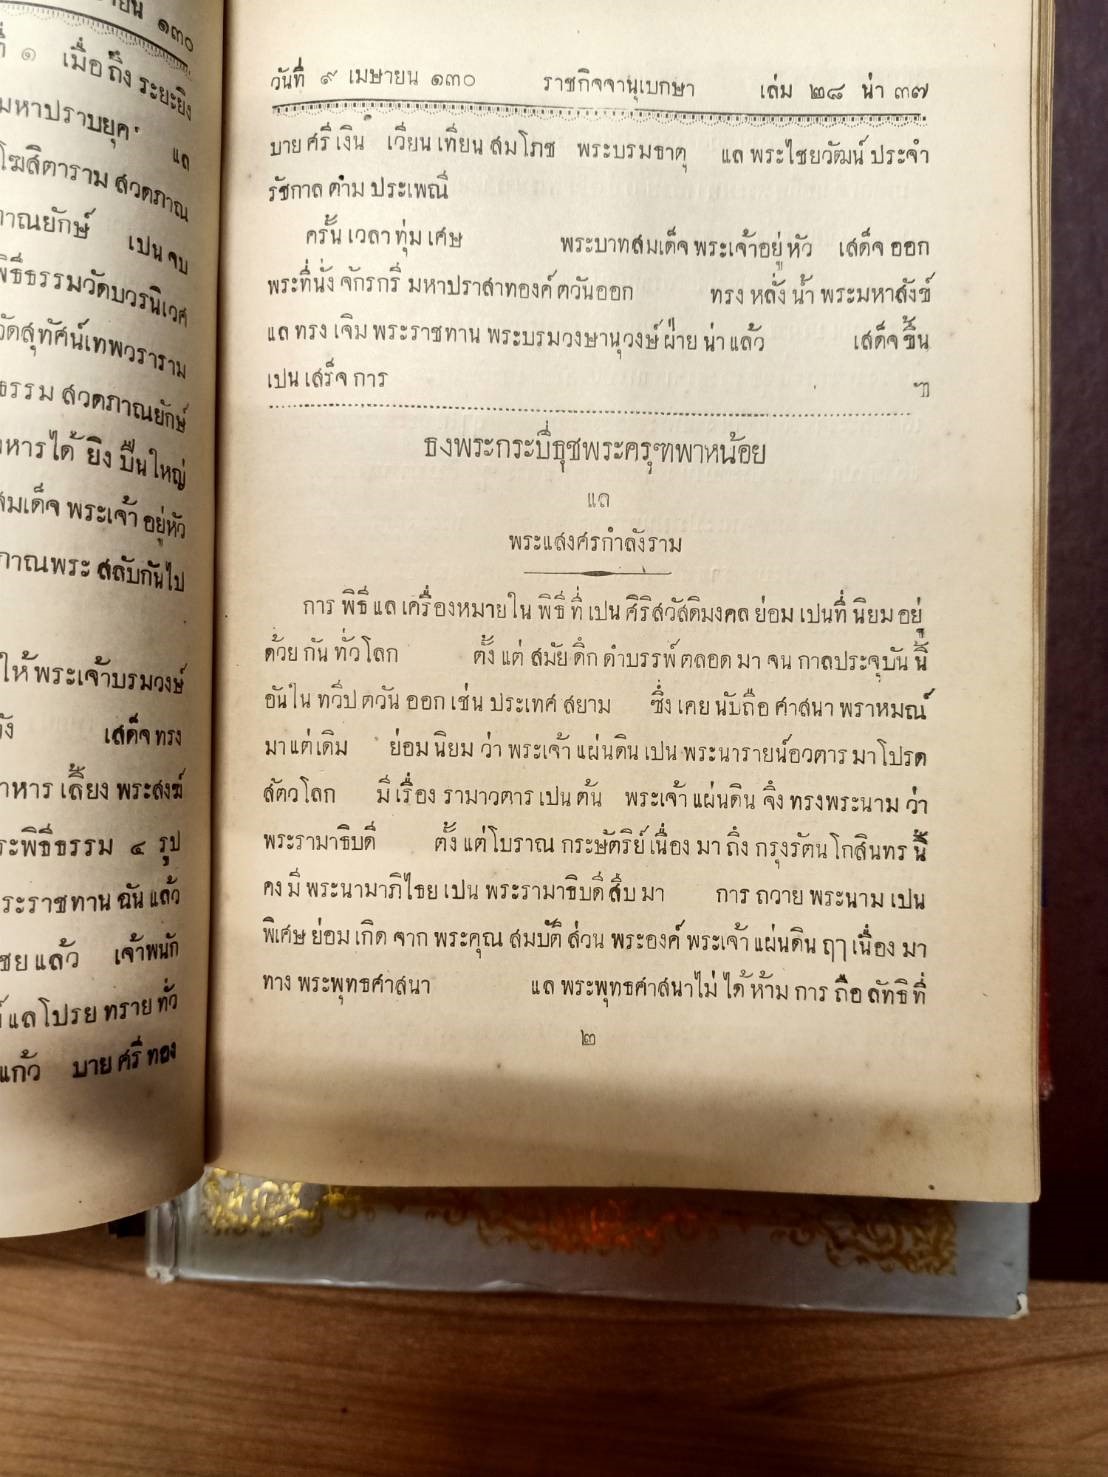 ที่ ๑ เมื่อ ถึง ระยะยิง
มหาปราบยุค แล
โฆสิตาราม สวดภาณ
ภาณยักษ์ เปน จบ
พิธีธรรมวัดบวรนิเวศ
วัดสุทัศน์เทพวราราม
ธรรม สวดภาณยักษ์
ทหาร ได้ ยิง ปืนใหญ่
สมเด็จ พระเจ้า อยู่หัว
ภาณพระ สลับกันไป
ให้ พระเจ้าบรมวงษ์
เสด็จ ทรง
อาหาร เลี้ยง พระสงฆ์
พระพิธีธรรม ๔ รูป
พระราชทาน ฉัน แล้ว
ไชย แล้ว เจ้าพนัก
แลโปรย ทราย ทั่ว
แก้ว บาย ศรี ทอง
วันที่ ๙ เมษายน ๑๓๐ ราชกิจจานุเบกษา เล่ม ๒๘ น่า ๓๗
บาย ศรี เงิน เวียน เทียน สมโภช พระบรมธาตุ แล พระไชยวัฒน์ ประจำ
รัชกาล ตาม ประเพณี
ครั้น เวลา ทุ่ม เศษ พระบาทสมเด็จ พระเจ้าอยู่ หัว เสด็จ ออก
พระที่นั่ง จักรกรี มหาปราสาทองค์ ตวันออก ทรง หลั่ง น้ำ พระมหาสังข์
แล ทรง เจิม พระราชทาน พระบรมวงษานุวงษ์ ฝ่าย น่า แล้ว เสด็จ ขึ้น
เปน เสร็จ การ
ธงพระกระบี่ธุชพระครุฑพาหน้อย
แล
พระแสงศรกำลังราม
การ พิธี แล เครื่องหมายใน พิธี ที่ เปน ศิริสวัสดิมงคล ย่อม เปนที่ นิยม อยู่
ด้วย กัน ทั่วโลก ตั้ง แต่ สมัย ดึก ดำบรรพ์ ตลอด มา จน กาลประจุบัน นี้
อันใน ทวีป ตวัน ออก เช่น ประเทศ สยาม ซึ่ง เคย นับถือ ศาสนา พราหมณ์
มาแต่ เดิม ย่อม นิยม ว่า พระเจ้า แผ่นดิน เปน พระนารายน์อวตาร มาโปรด
สัตวโลก มี เรื่อง รามาวตาร เปน ต้น พระเจ้า แผ่นดิน จึ่ง ทรงพระนาม ว่า
พระรามาธิบดี ตั้ง แต่โบราณ กระษัตริย์ เนื่อง มา ถึง กรุงรัตนโกสินทร นี้
คง มี พระนามาภิไธย เปน พระรามาธิบดี สืบ มา การ ถวาย พระนาม เปน
พิเศษ ย่อม เกิด จาก พระคุณ สมบัติ ส่วน พระองค์ พระเจ้า แผ่นดิน ฤๅ เนื่อง มา
ทาง พระพุทธศาสนา แล พระพุทธศาสนาไม่ ได้ ห้าม การ ถือ ลัทธิ ที่
๒